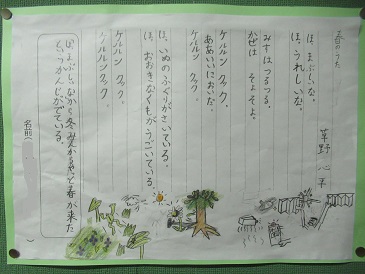 春のうた
草野 心平
ほ、まぶしいな。
ほ、うれしいな。
みずは つるつる。
かぜは そよそよ。
ケルルン クック。
ああいいにおいだ。
ケルルン クック。
ほ、いぬのふぐりがさいている。
ほ、おおきなくもがうごいている。
ケルルン クック。
ケルルン クック。
ほ、まぶしいな。から冬みんからさめて春が来た
かんじがでている。
名前(
)